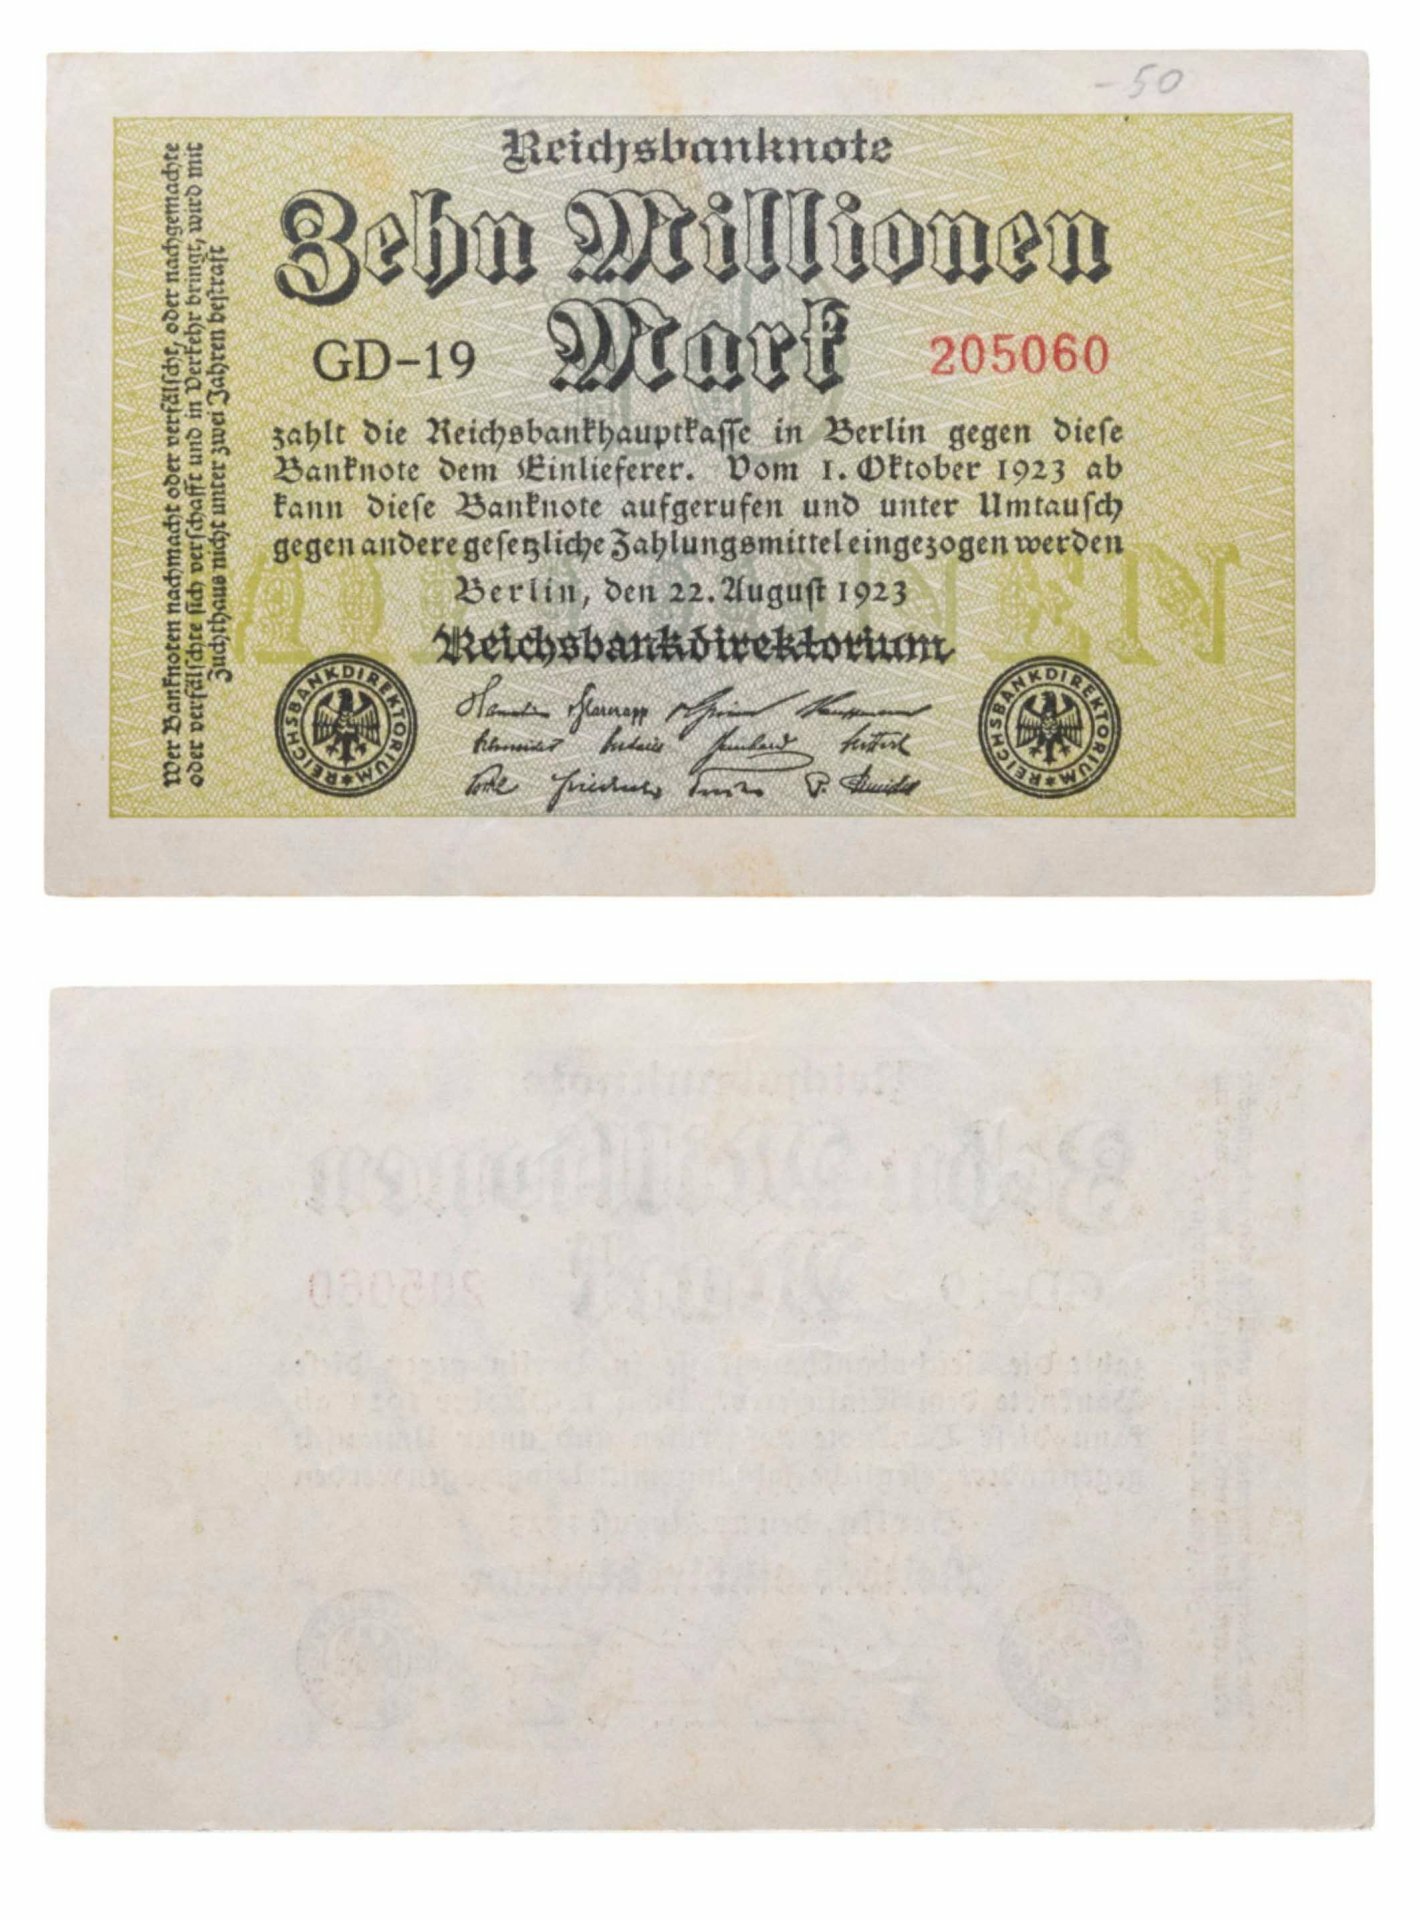 -50
Reichsbanknote
Zehn Millionen
Mark
GD-19
205060
zahlt die Reichsbankhauptkasse in Berlin gegen diese
Banknote dem Einlieferer. Vom 1. Oktober 1923 ab
kann diese Banknote aufgerufen und unter Umtausch
gegen andere gesetzliche Zahlungsmittel eingezogen werden
Berlin, den 22. August 1923
Reichsbankdirektorium
REICHSBANKDIREKTORIUM
REICHSBANKDIREKTORIUM
Wer Banknoten nachmacht oder verfälscht, oder nachgemachte
oder verfälschte sich verschafft und in Verkehr bringt, wird mit
Zuchthaus nicht unter zwei Jahren bestraft
10